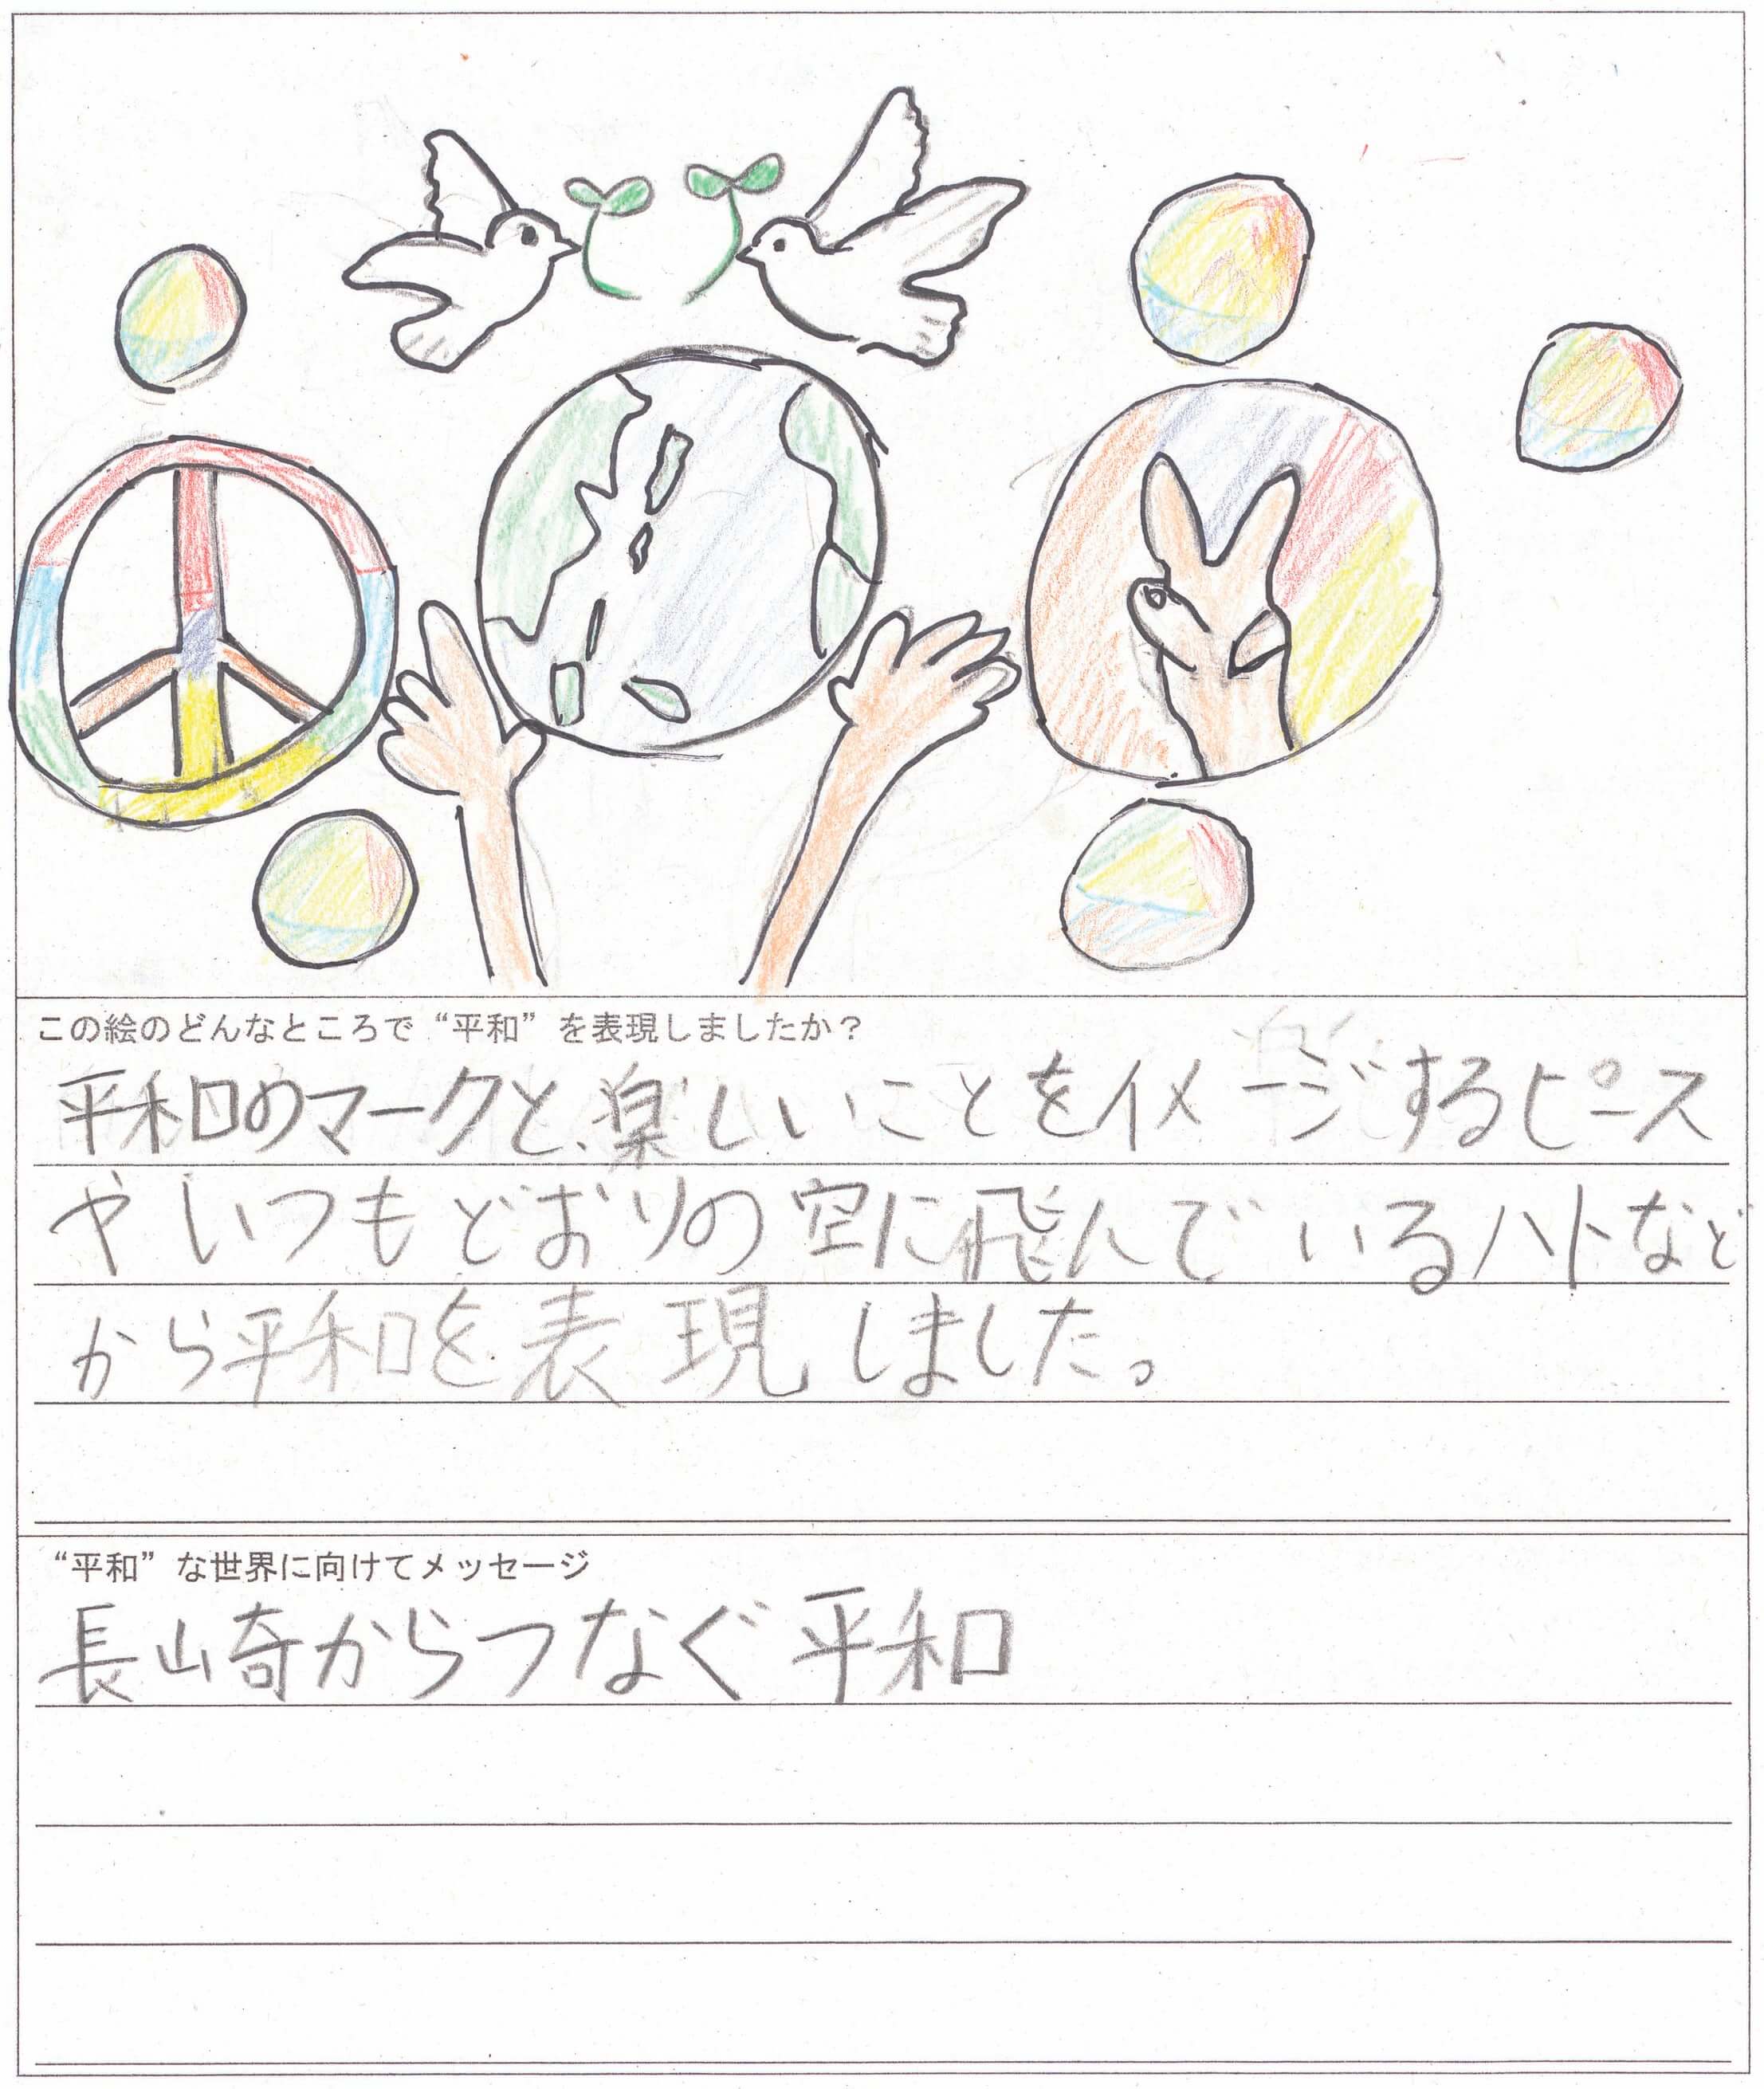 この絵のどんなところで“平和”を表現しましたか？
平和のマークと、楽しいことをイメージするピース
やいつもどおりの空に飛んでいるハトなど
から平和を表現しました。
“平和”な世界に向けてメッセージ
長崎からつなぐ平和